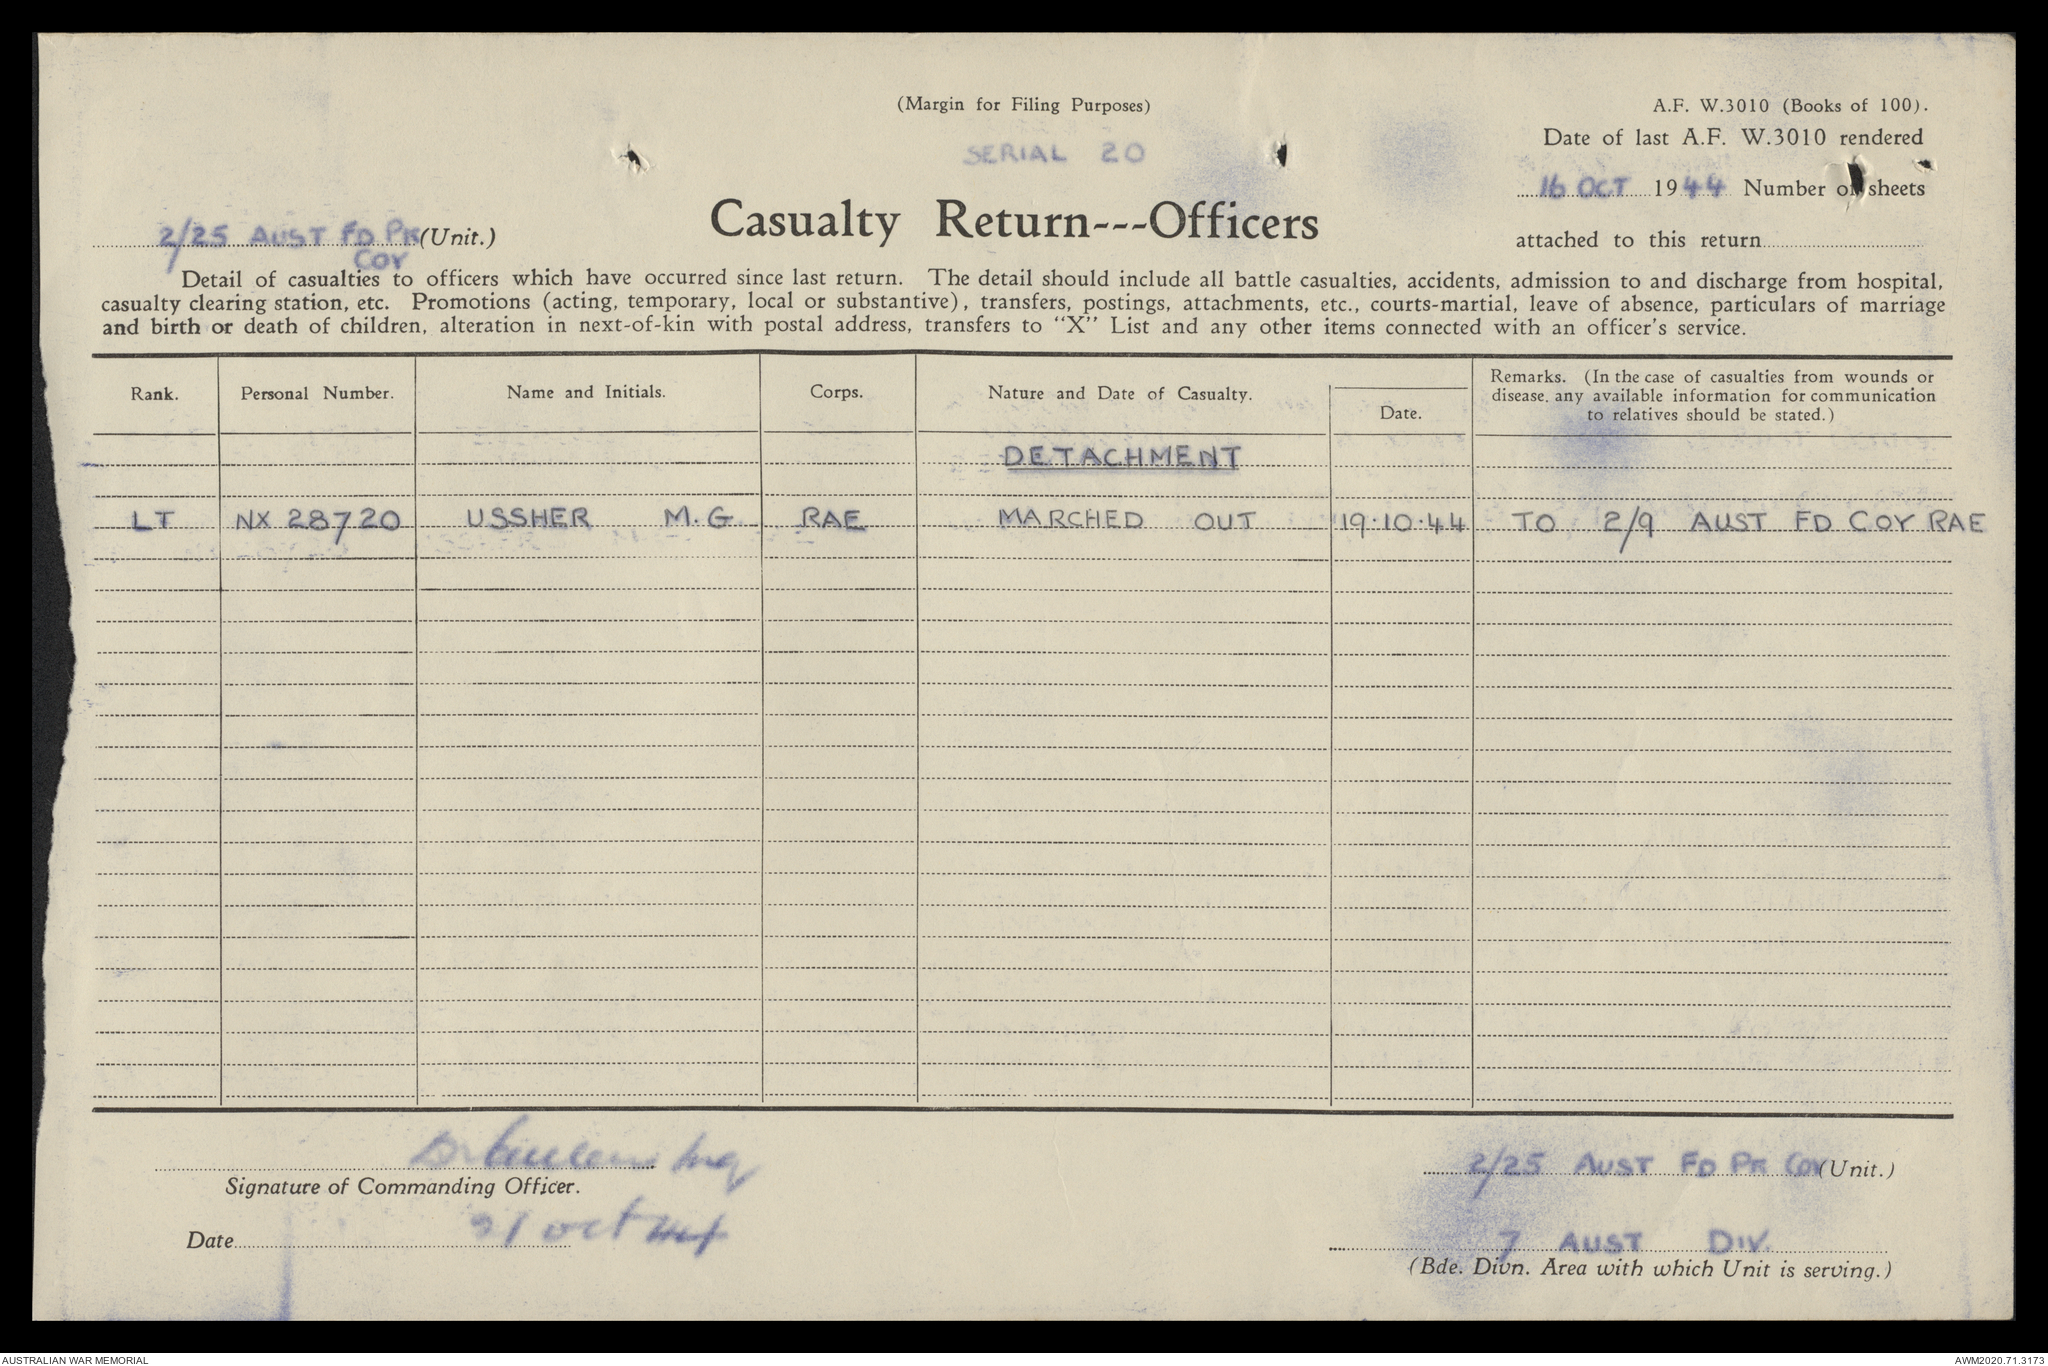 (Margin for Filing Purposes)
A.F. W.3010 (Books of 100).
SERIAL 20
Date of last A.F. W.3010 rendered
16 OCT 1944 Number of sheets
attached to this return
2/25 AUST FD PK (Unit.)
COY
Casualty Return---Officers
Detail of casualties to officers which have occurred since last return. The detail should include all battle casualties, accidents, admission to and discharge from hospital,
casualty clearing station, etc. Promotions (acting, temporary, local or substantive), transfers, postings, attachments, etc., courts-martial, leave of absence, particulars of marriage
and birth or death of children, alteration in next-of-kin with postal address, transfers to "X" List and any other items connected with an officer's service.
Rank. Personal Number. Name and Initials. Corps. Nature and Date of Casualty. Date.
Remarks. (In the case of casualties from wounds or
disease, any available information for communication
to relatives should be stated.)
DETACHMENT
LT NX 28720 USSHER M.G RAE MARCHED OUT 19.10.44 TO 2/9 AUST FD COY RAE
Signature of Commanding Officer.
Date 21 Oct 44
2/25 AUST FD PK COY (Unit.)
7 AUST DIV.
(Bde. Divn. Area with which Unit is serving.)
AUSTRALIAN WAR MEMORIAL
AWM2020.71.3173